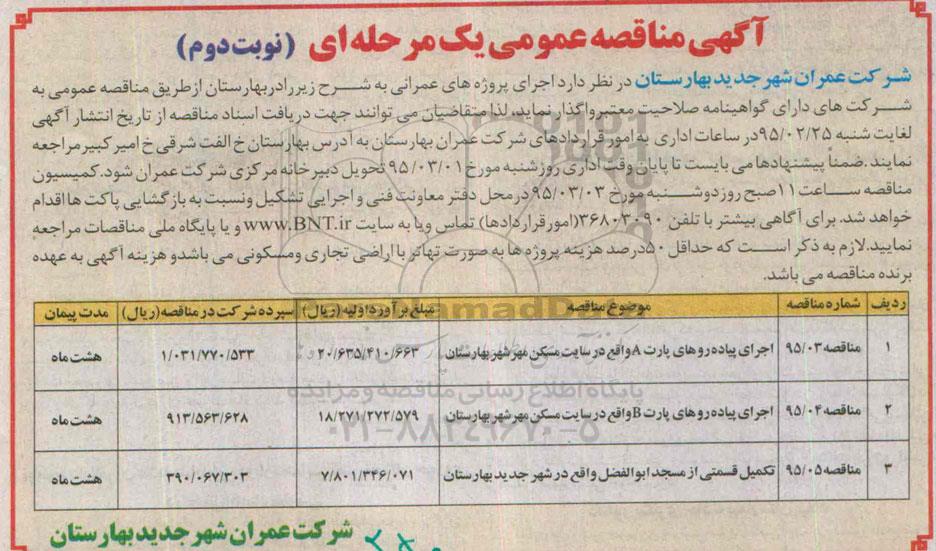 آگهی مناقصه عمومی یک مرحله ای (نوبت دوم)
شرکت عمران شهر جدید بهارستان در نظر دارد اجرای پروژه های عمرانی به شرح زیر رادر بهارستان ازطریق مناقصه عمومی به
شرکت های دارای گواهینامه صلاحیت معتبر واگذار نماید، لذا متقاضیان می توانند جهت دریافت اسناد مناقصه از تاریخ انتشار آگهی
لغایت شنبه ۹۵/۰۲/۲۵ در ساعات اداری به امور قراردادهای شرکت عمران بهارستان به آدرس بهارستان خ الفت شرقی خ امیر کبیر مراجعه
نمایند. ضمناً پیشنهادها می بایست تا پایان وقت اداری روز شنبه مورخ ۹۵/۰۳/۰۱ تحویل دبیر خانه مرکزی شرکت عمران شود. کمیسیون
مناقصه ساعت ۱۱ صبح روز دوشنبه مورخ ۹۵/۰۳/۰۳ در محل دفتر معاونت فنی و اجرایی تشکیل ونسبت به بازگشایی پاکت ها اقدام
خواهد شد. برای آگاهی بیشتر با تلفن ۳۶۸۰۳۰۹۰ (امور قراردادها) تماس ویا به سایت www.BNT.ir و یا پایگاه ملی مناقصات مراجعه
نمایید. لازم به ذکر است که حداقل ۵۰درصد هزینه پروژه ها به صورت تهاتر با اراضی تجاری ومسکونی می باشدو هزینه آگهی به عهده
برنده مناقصه می باشد.
ردیف شماره مناقصه موضوع مناقصه مبلغ برآورد اولیه (ریال) سپرده شرکت در مناقصه (ریال) مدت پیمان
۱ مناقصه ۹۵/۰۳ اجرای پیاده رو های پارت A واقع در سایت مسکن مهر شهر بهارستان ۲۰/۶۳۵/۴۱۰/۶۶۳ ۱/۰۳۱/۷۷۰/۵۳۳ هشت ماه
پایگاه اطلاع رسانی مناقصه و مزایده
۲ مناقصه ۹۵/۰۴ اجرای پیاده رو های پارت B واقع در سایت مسکن مهر شهر بهارستان ۱۸/۲۷۱/۲۷۲/۵۷۹ ۹۱۳/۵۶۳/۶۲۸ هشت ماه
۰۲۱-۸۸۳۴۹۶۷۰-۵
۳ مناقصه ۹۵/۰۵ تکمیل قسمتی از مسجد ابوالفضل واقع در شهر جدید بهارستان ۷/۸۰۱/۳۴۶/۰۷۱ ۳۹۰/۰۶۷/۳۰۳ هشت ماه
شرکت عمران شهر جدید بهارستان